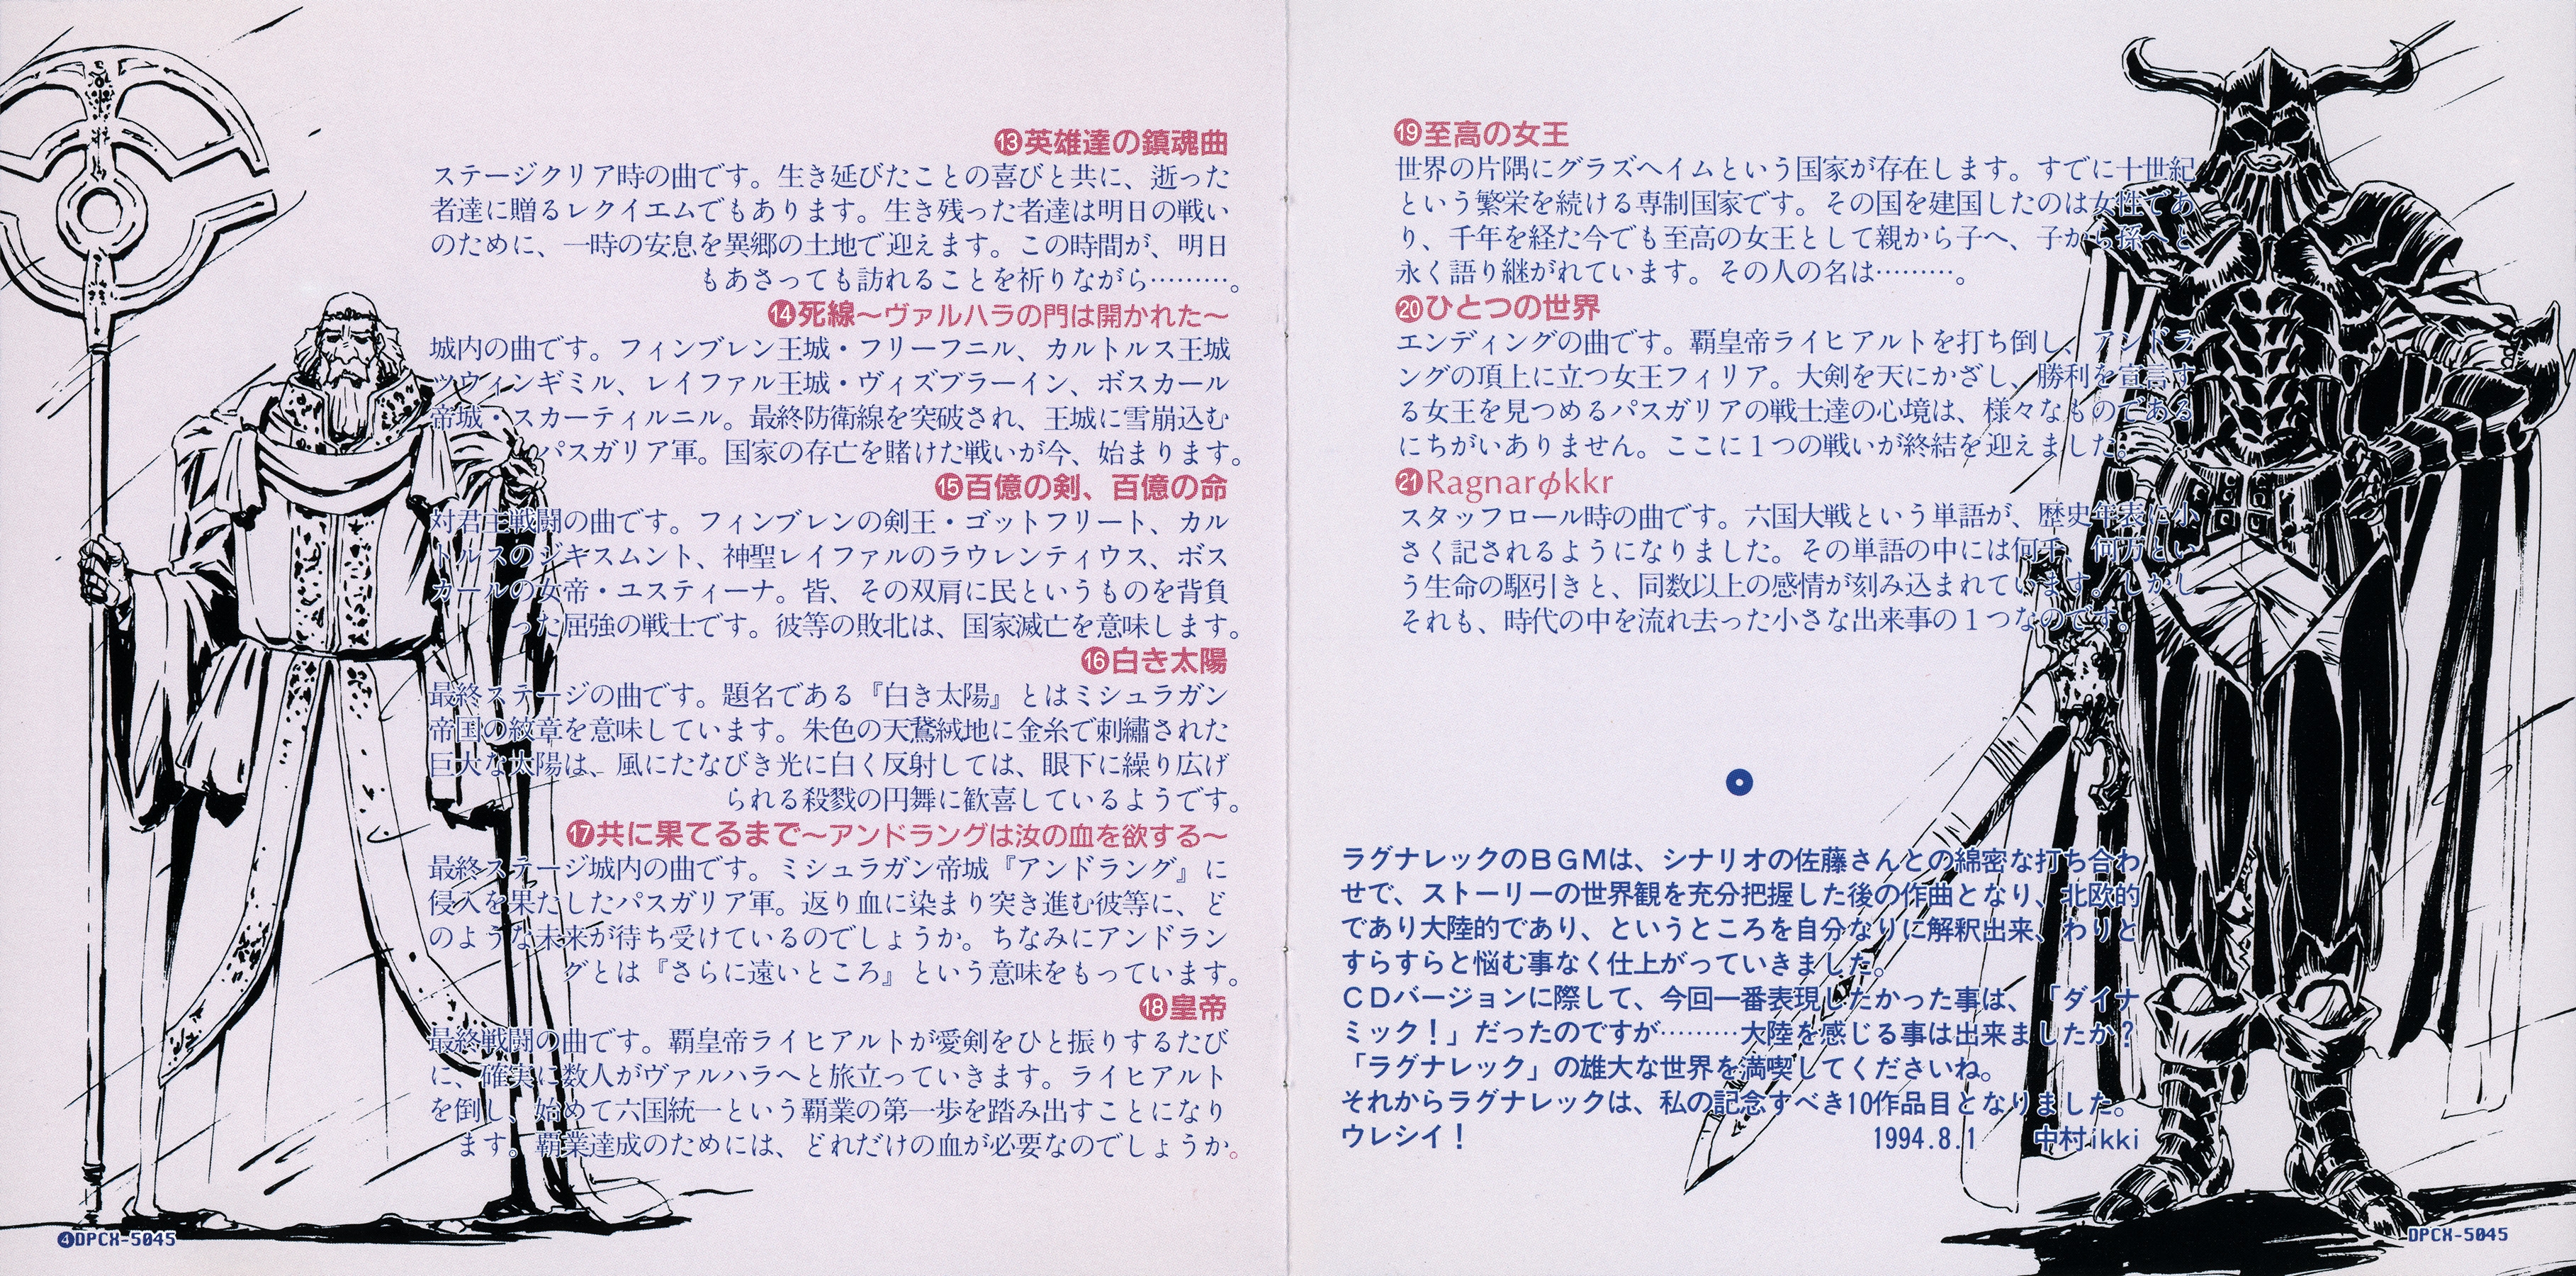 ⓭英雄達の鎮魂曲
ステージクリア時の曲です。生き延びたことの喜びと共に、逝った
者達に贈るレクイエムでもあります。生き残った者達は明日の戦い
のために、一時の安息を異郷の土地で迎えます。この時間が、明日
もあさっても訪れることを祈りながら………。
⓮死線〜ヴァルハラの門は開かれた〜
城内の曲です。フィンブレン王城・フリーフニル、カルトルス王城
ッウィンギミル、レイファル王城・ヴィズブラーイン、ボスカール
帝城・スカーティルニル。最終防衛線を突破され、王城に雪崩込む
パスガリア軍。国家の存亡を賭けた戦いが今、始まります。
⓯百億の剣、百億の命
対君主戦闘の曲です。フィンブレンの剣王・ゴットフリート、カル
トルスのジキスムント、神聖レイファルのラウレンティウス、ボス
カールの女帝・ユスティーナ。皆、その双肩に民というものを背負
った屈強の戦士です。彼等の敗北は、国家滅亡を意味します。
⓰白き太陽
最終ステージの曲です。題名である『白き太陽』とはミシュラガン
帝国の紋章を意味しています。朱色の天鵞絨地に金糸で刺繡された
巨大な太陽は、風にたなびき光に白く反射しては、眼下に繰り広げ
られる殺戮の円舞に歓喜しているようです。
⓱共に果てるまで〜アンドラングは汝の血を欲する〜
最終ステージ城内の曲です。ミシュラガン帝城『アンドラング』に
侵入を果たしたパスガリア軍。返り血に染まり突き進む彼等に、ど
のような未来が待ち受けているのでしょうか。ちなみにアンドラン
グとは『さらに遠いところ』という意味をもっています。
⓲皇帝
最終戦闘の曲です。覇皇帝ライヒアルトが愛剣をひと振りするたび
に、確実に数人がヴァルハラへと旅立っていきます。ライヒアルト
を倒し、始めて六国統一という覇業の第一歩を踏み出すことになり
ます。覇業達成のためには、どれだけの血が必要なのでしょうか。
❹DPCX-5045
⓳至高の女王
世界の片隅にグラズヘイムという国家が存在します。すでに十世紀
という繁栄を続ける専制国家です。その国を建国したのは女性であ
り、千年を経た今でも至高の女王として親から子へ、子から孫へと
永く語り継がれています。その人の名は………。
⓴ひとつの世界
エンディングの曲です。覇皇帝ライヒアルトを打ち倒し、アンドラ
ングの頂上に立つ女王フィリア。大剣を天にかざし、勝利を宣言す
る女王を見つめるパスガリアの戦士達の心境は、様々なものである
にちがいありません。ここに１つの戦いが終結を迎えました。
㉑Ragnarøkkr
スタッフロール時の曲です。六国大戦という単語が、歴史年表に小
さく記されるようになりました。その単語の中には何千、何万とい
う生命の駆引きと、同数以上の感情が刻み込まれています。しかし
それも、時代の中を流れ去った小さな出来事の１つなのです。
ラグナレックのＢＧＭは、シナリオの佐藤さんとの綿密な打ち合わ
せで、ストーリーの世界観を充分把握した後の作曲となり、北欧的
であり大陸的であり、というところを自分なりに解釈出来、わりと
すらすらと悩む事なく仕上がっていきました。
ＣＤバージョンに際して、今回一番表現したかった事は、「ダイナ
ミック！」だったのですが………大陸を感じる事は出来ましたか？
「ラグナレック」の雄大な世界を満喫してくださいね。
それからラグナレックは、私の記念すべき10作品目となりました。
ウレシイ！ 1994.8.1 中村ikki
DPCX-5045